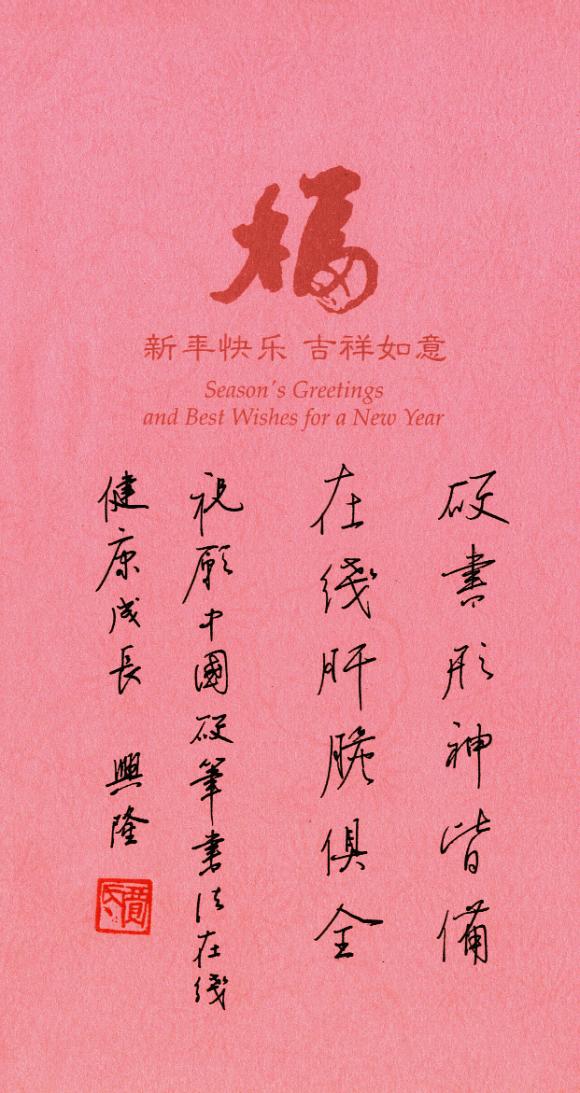 福
新年快乐 吉祥如意
Season's Greetings
and Best Wishes for a New Year
硬書形神皆備
在綫肝膽俱全
祝願中國硬筆書法在綫
健康成長 興隆